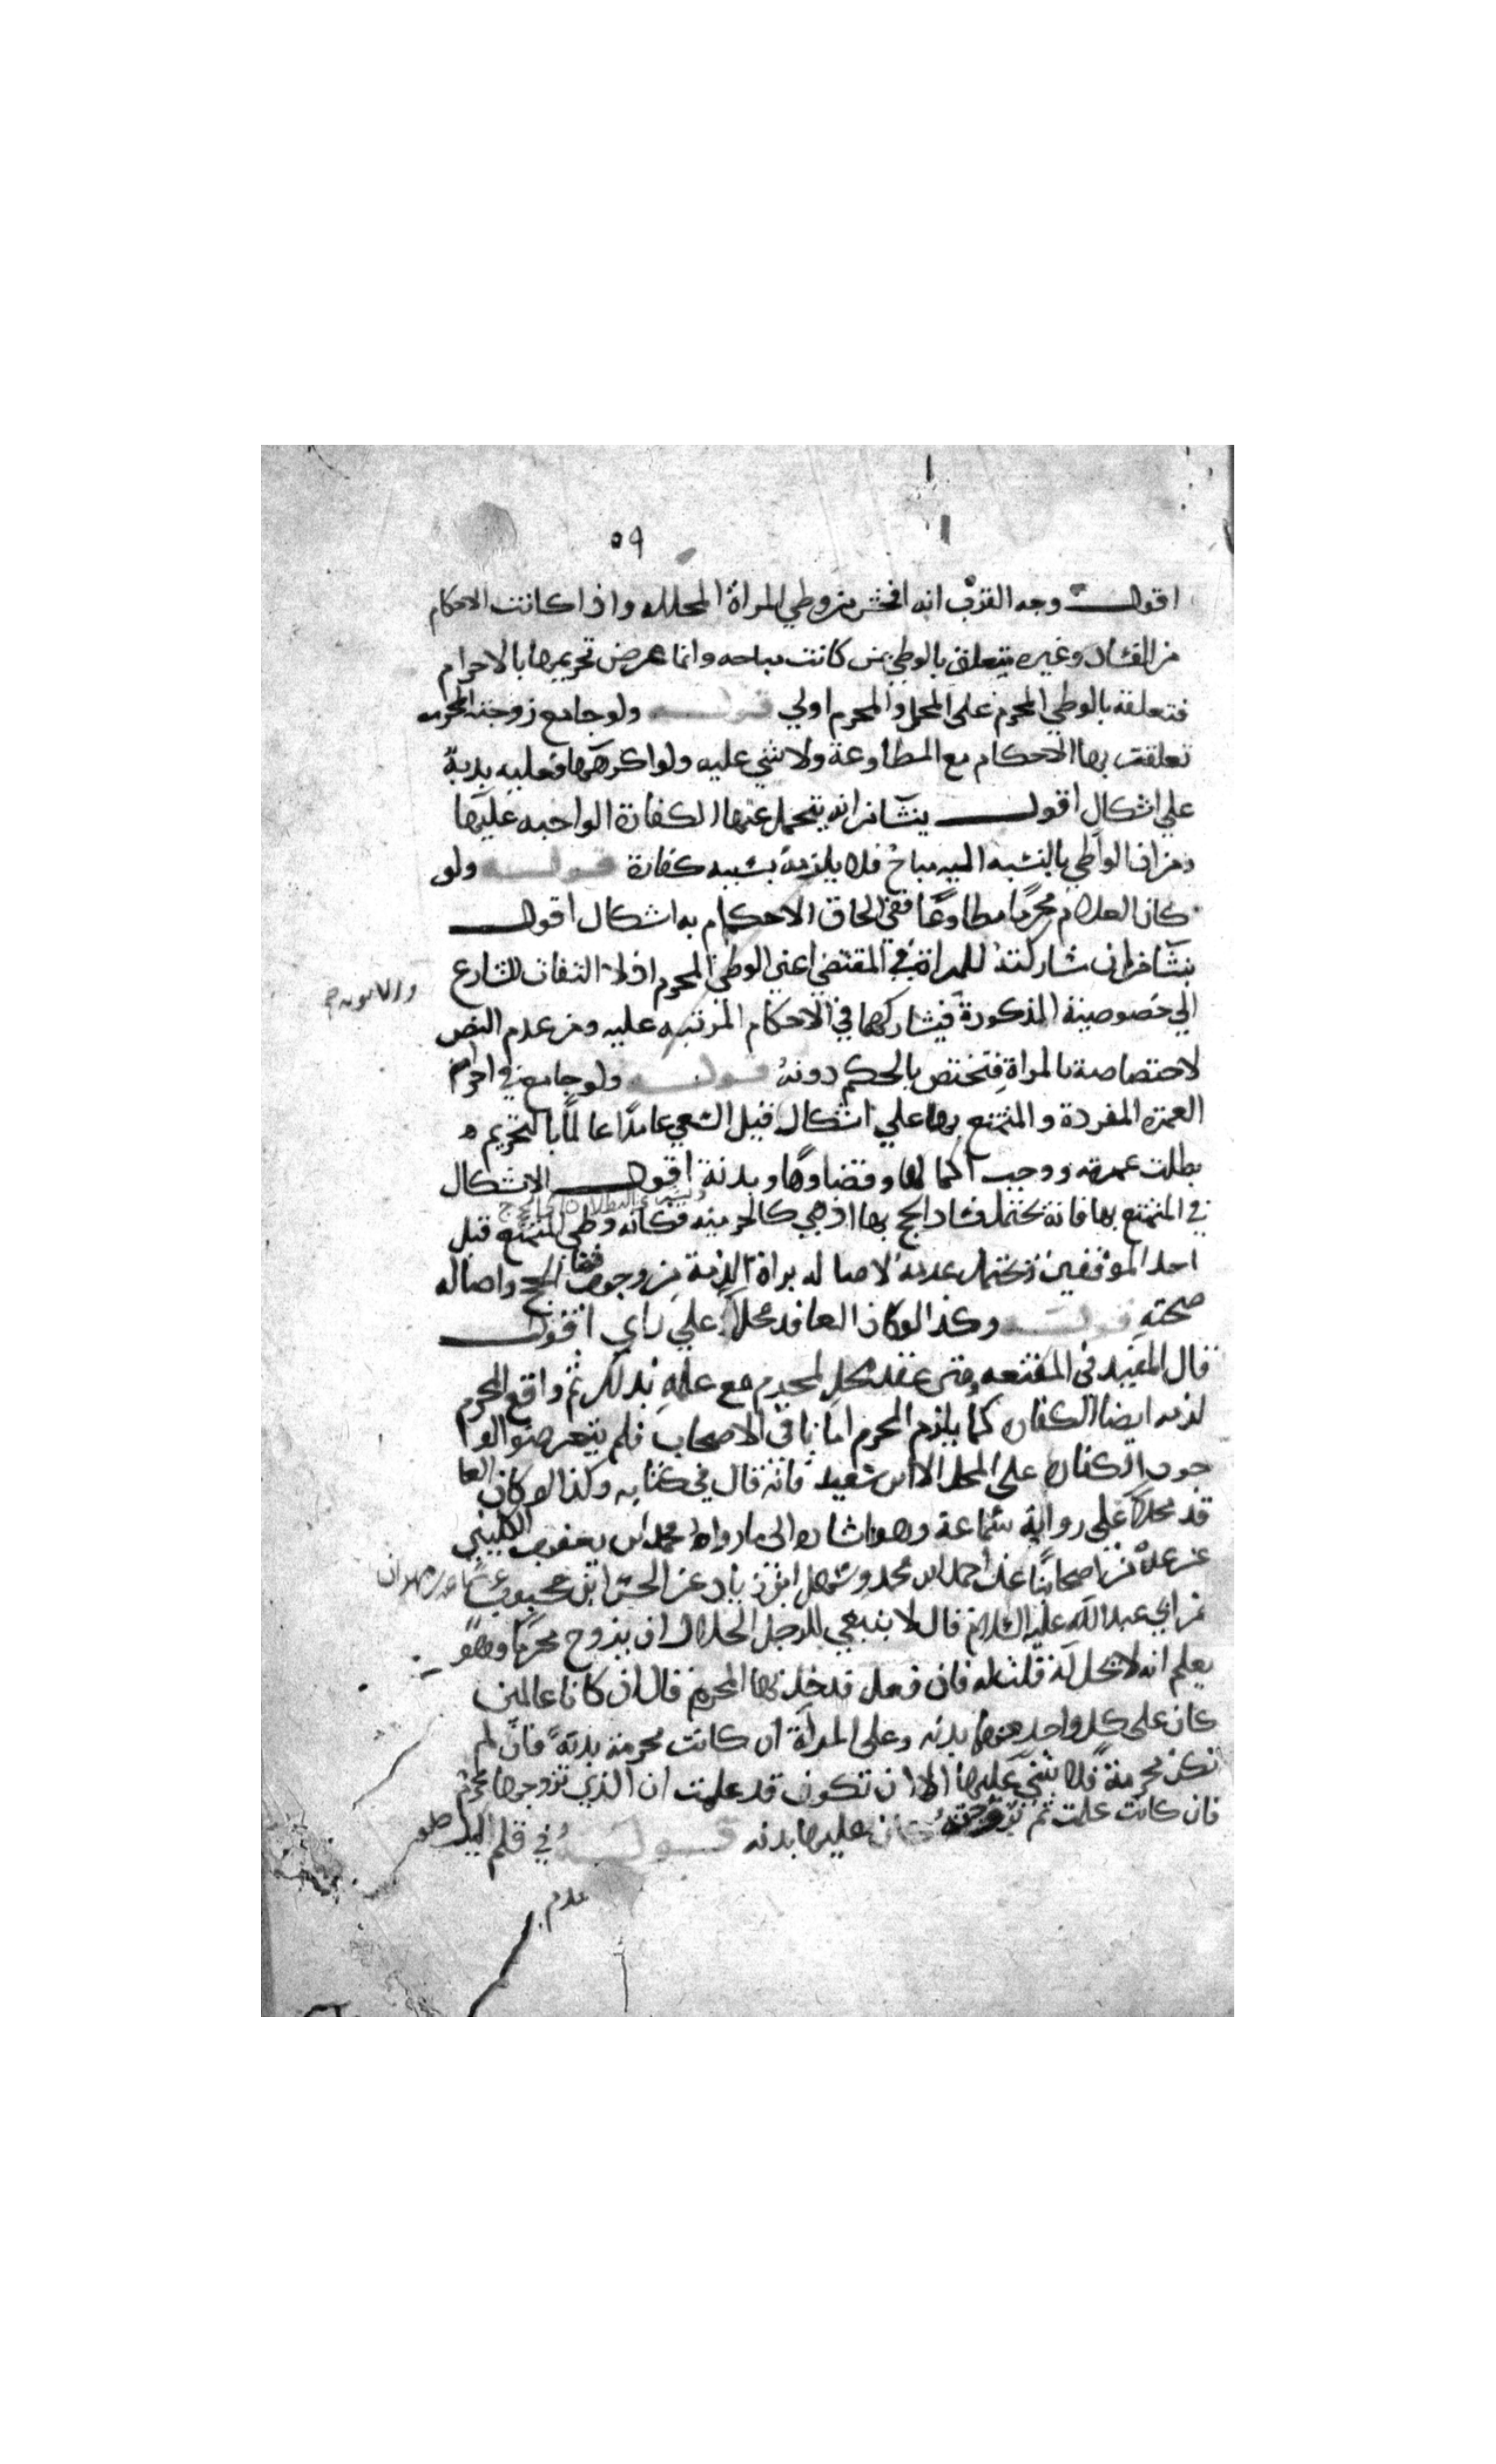 ٥٩
اقول وجه القرب انه افحش من وطي المراة المحلله واذا كانت الاحكام
من الفساد وغيره يتعلق بالوطي بمن كانت مباحه وانما عرض تحريمها بالاحرام
فتعلقه بالوطي المحرم على المحل والمحرم اولي قوله ولو جامع زوجته المحرمه
تعلقت بها الاحكام مع المطاوعة ولا شي عليه ولو اكرهها فعليه بدنة
علي اشكال اقول ينشا من انه يتحمل عنها الكفارة الواجبه عليها
ومن ان الوطي بالنسبه اليه مباح فلا يلزمه بسببه كفارة قوله ولو
كان الغلام محرما مطاوعا ففي الحاق الاحكام به اشكال اقول
ينشا من ان مشاركته للمراة في المقتضي اعني الوطي المحرم اذ لا التفات للشارع
الي خصوصية المذكورة فيشاركها في الاحكام المرتبه عليه ومن عدم النص
لاختصاصه بالمراة فتختص بالحكم دونه قوله ولو جامع في احرام
العمرة المفردة والمتمتع بها علي اشكال قبل السعي عامدا عالما بالتحريم
بطلت عمرته ووجب اكمالها وقضاوها وبدنة اقول الاشكال
في المتمتع بها فانه يحتمل فساد الحج بها اذ هي كالجزء منه فكانه وطي المتمتع قبل
احد الموقفين ويحتمل عدمه لاصاله براة الذمة من وجوب قضا الحج واصاله
صحته قوله وكذا لو كان العاقد محلا علي راي اقول
قال المفيد في المقنعه ومتى عقد محل لمحرم مع علمه بذلك ثم واقع المحرم
لزمه ايضا الكفاره كما يلزم المحرم اما باقي الاصحاب فلم يتعرضوا لو
جوب الكفاره على المحل الا ابن سعيد فانه قال في كتابه وكذا لو كان العا
قد محلا على رواية سماعة وهو اشاره الى ما رواه محمد ابن يعقوب الكليني
عن عدة من اصحابنا عن احمد ابن محمد وسهل ابن زياد عن الحسن ابن محبوب عن سماعه بن مهران
عن ابي عبد الله عليه السلام قال لا ينبغي للرجل الحلال ان يزوج محرما وهو
يعلم انه لا يحل له قلت له فان فعل فدخل بها المحرم قال ان كانا عالمين
كان على كل واحد منهما بدنه وعلى المراة ان كانت محرمة بدنة فان لم
تكن محرمة فلا شي عليها الا ان تكون قد علمت ان الذي تزوجها محرم
فان كانت علمت ثم تزوجته كان عليها بدنه قوله في قلم